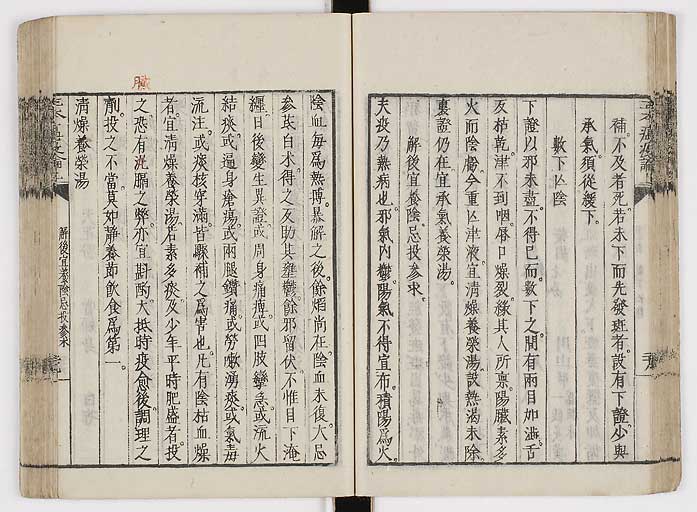 補不及者死若未下而先發斑者設有下證少與
承氣須從緩下
數下亡陰
下證以邪未盡不得已而數下之間有兩目如澁舌
反枯乾津不到咽唇口燥裂緣其人所禀陽臟素多
火而陰虧今重亡津液宜清燥養榮湯設熱渴未除
裏證仍在宜承氣養榮湯
解後宜養陰忌投參朮
夫疫乃熱病也邪氣內鬱陽氣不得宣布積陽爲火
陰血每爲熱搏暴解之後餘熖尚在陰血未復大忌
參芪白朮得之反助其壅鬱餘邪留伏不惟目下淹
纏日後變生異證或周身痛痺或四肢攣急或流火
結痰或遍身瘡瘍或兩腿鑽痛或勞嗽湧痰或氣毒
流注或痰核穿漏皆驟補之爲害也凡有陰枯血燥
者宜清燥養榮湯若素多痰及少年平時肥盛者投
之恐有泥膈之弊亦宜斟酌大抵時疫愈後調理之
劑投之不當莫如靜養節飲食爲第一
清燥養榮湯
解後宜養陰忌投參朮